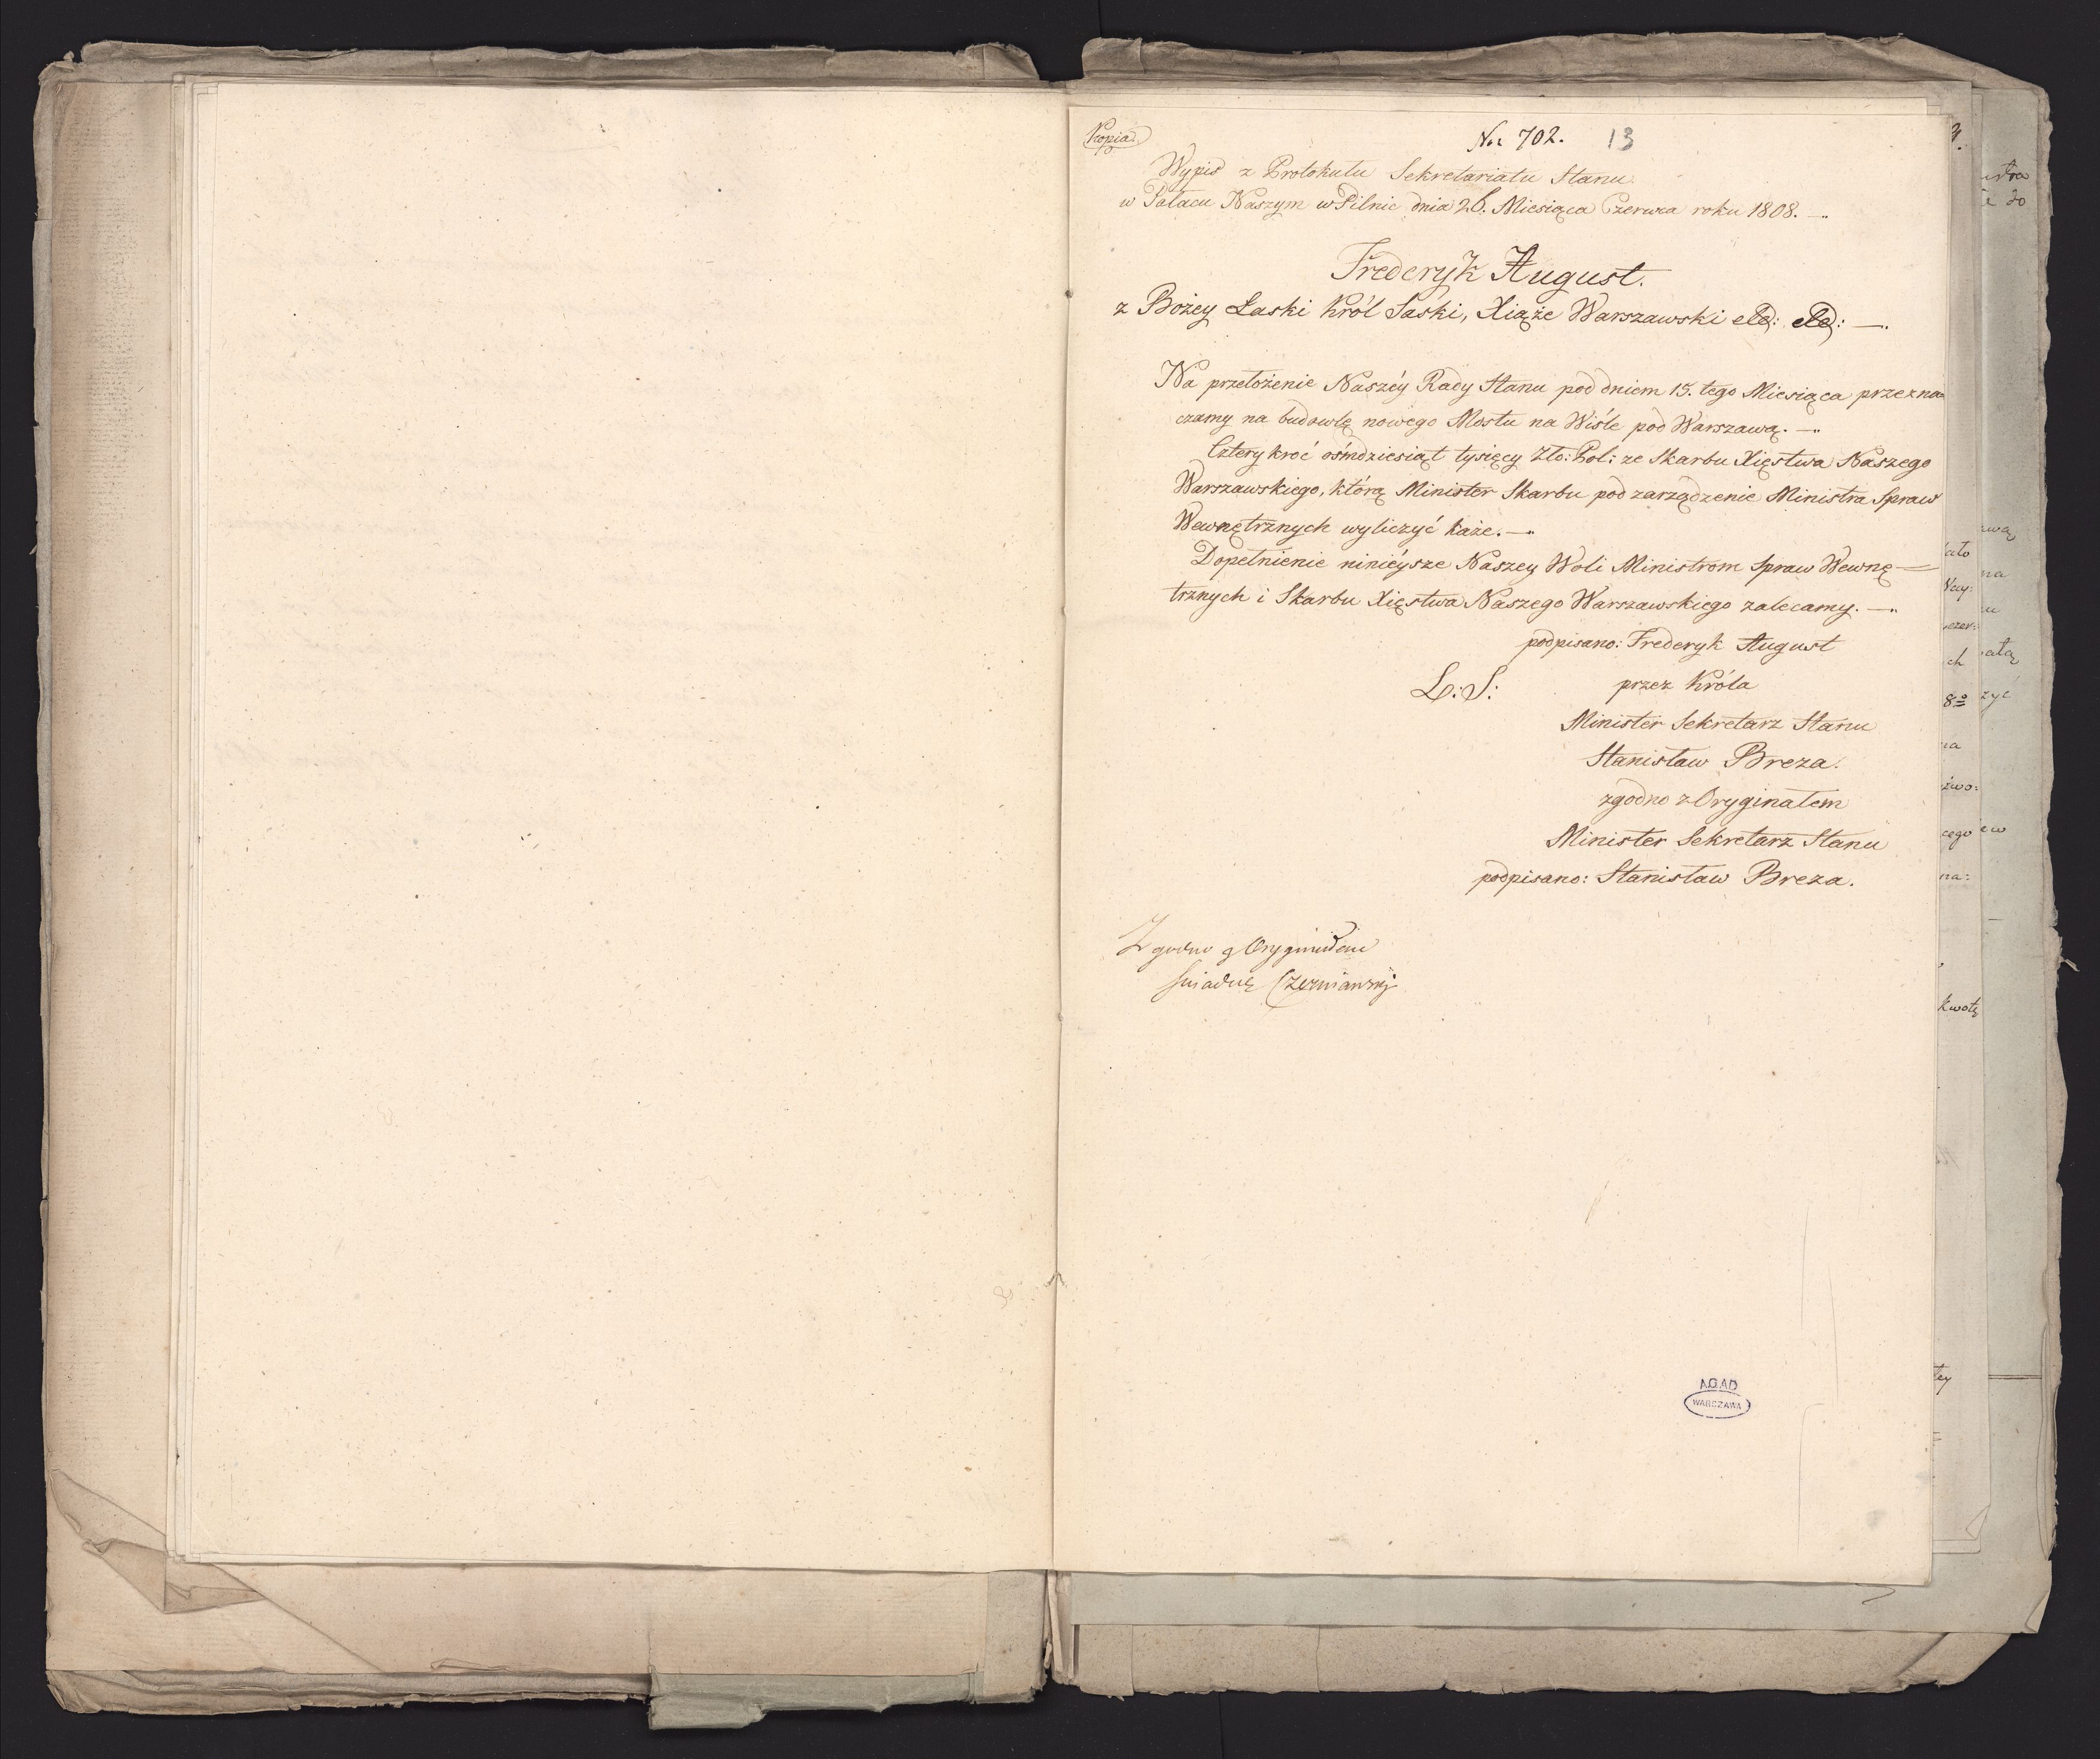 Kopia.
No 702. 13
Wypis z Protokułu Sekretariatu Stanu.
w Pałacu Naszym w Pilnic dnia 26. Miesiąca Czerwca roku 1808. —.
Frederyk August.
z Bożey Łaski Król Saski, Xiąże Warszawski etc: etc: —.
Na przełożenie Naszéy Rady Stanu pod dniem 15. tego Miesiąca przezna=
czamy na budowlę nowego Mostu na Wiśle pod Warszawą. —.
Cztery kroć ośmdziesiąt tysięcy Zło: Pol: ze Skarbu Xięstwa Naszego
Warszawskiego, którą Minister Skarbu pod zarządzenie Ministra Spraw
Wewnętrznych wyliczyć każe. —.
Dopełnienie ninieysze Naszey Woli Ministrom Spraw Wewnę=
trznych i Skarbu Xięstwa Naszego Warszawskiego zalecamy. —.
podpisano: Frederyk August
L: S: przez Króla
Minister Sekretarz Stanu
Stanisław Breza.
zgodno z Oryginałem
Minister Sekretarz Stanu
podpisano: Stanisław Breza.
Zgodno z Oryginałem
A.G.A.D
WARSZAWA
kwotę